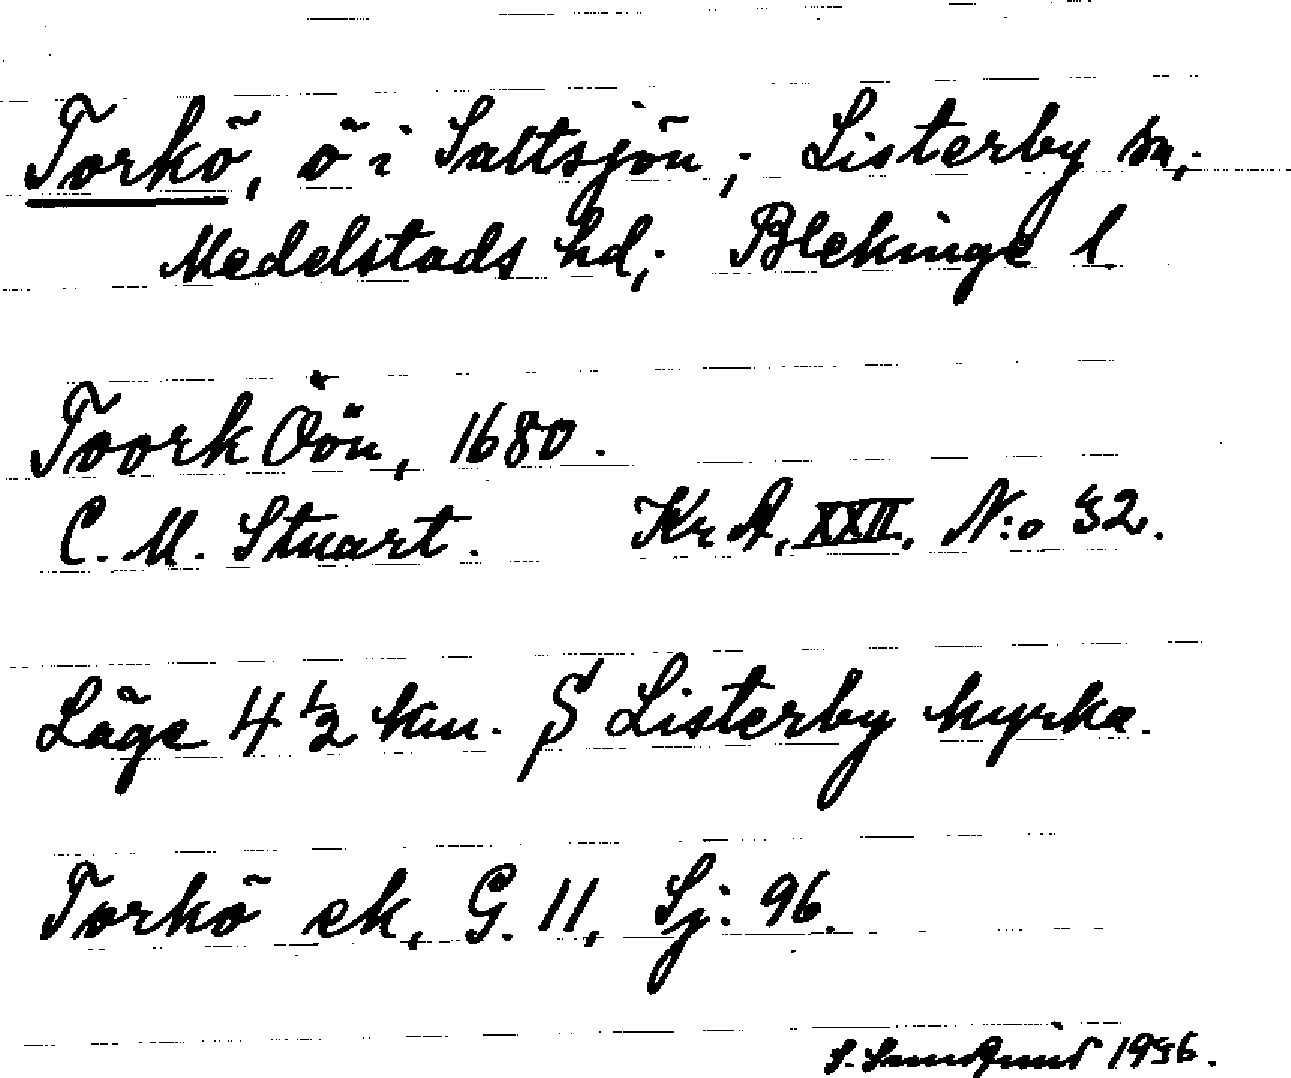 Torkö, ö i Saltsjön; Listerby sn;
Medelstads hd; Blekinge l
Toork Öön, 1680.
C. M. Stuart. Kr A, XXII, N:o 32.
Läge 4 1/2 km. S Listerby kyrka.
Torkö ek, G. 11, Sj: 96.
S. 1956.